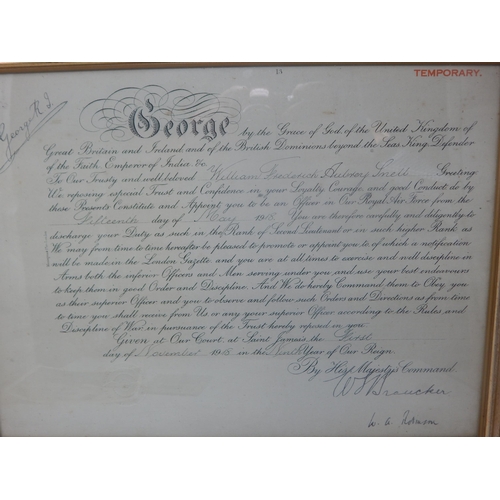 TEMPORARY.
George R I
George by the Grace of God, of the United Kingdom of
Great Britain and Ireland and of the British Dominions beyond the Seas King, Defender
of the Faith, Emperor of India &c
To Our Trusty and well beloved William Frederick Greeting
We, reposing especial Trust and Confidence in your Loyalty Courage and good Conduct do by
these Presents Constitute and Appoint you to be an Officer in Our Royal Air Force from the
Fifteenth day of May 1918. You are therefore carefully and diligently to
discharge your Duty as such in the Rank of Second Lieutenant or in such higher Rank as
We may from time to time hereafter be pleased to promote or appoint you to of which a notification
will be made in the London Gazette and you are at all times to exercise and well discipline in
Arms both the inferior Officers and Men serving under you and use your best endeavours
to keep them in good Order and Discipline. And We do hereby Command them to Obey you
as their superior Officer and you to observe and follow such Orders and Directions as from time
to time you shall receive from Us or any your superior Officer according to the Rules and
Discipline of War in pursuance of the Trust hereby reposed in you.
Given at Our Court, at Saint James's the First
day of November 1918 in the Ninth Year of Our Reign.
By His Majesty's Command.
W. A. Robinson